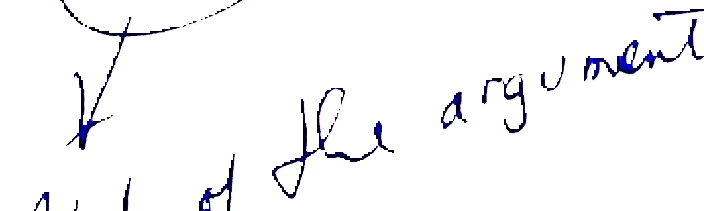 of the argument